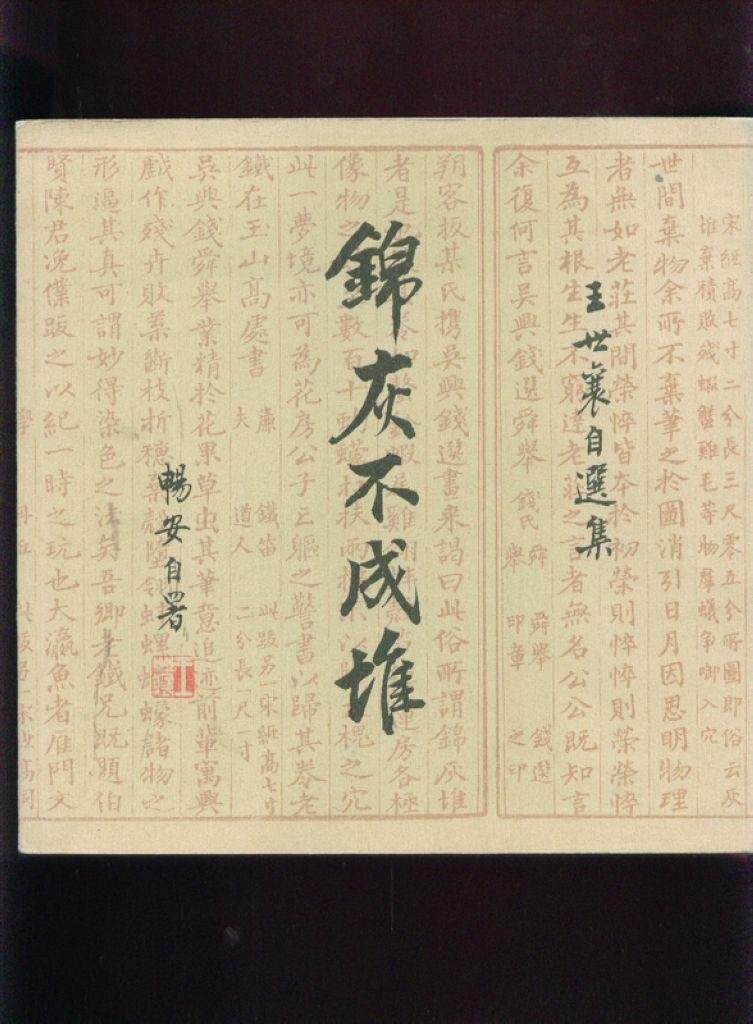 錦灰不成堆
王世襄自選集
暢安自署
宋紙高七寸二分長三尺零五分所圖即俗云灰
堆棄積敗殘蝦蟹雞毛等物羣蟻爭啣入穴
世間棄物余所不棄筆之於圖消引日月因思明物理
者無如老莊其間榮悴皆本於初榮則悴悴則榮榮悴
互為其根生生不窮達老莊之言者無名公公既知言
余復何言吳興錢選舜舉 錢氏 舜舉 印章 舜舉 錢選之印
朔客扳某氏攜吳興錢選畫來謁曰此俗所謂錦灰堆
者是 房各極
像物之 數百十 槐之穴
此一夢境亦可為花房公子亡軀之警書以歸其券老
鐵在玉山高處書 廉夫 鐵笛道人 此跋另一宋紙高七寸二分長一尺一寸
吳興錢舜舉業精於花果草虫其筆意追迹前輩寓興
戲作殘卉敗蘂斷枝折穗 殼墮翎 螺 蠓諸物之
形逼其真可謂妙得染色之法矣吾鄉老鐵兄既題伯
賢陳君浼僕跋之以紀一時之玩也大瀛魚者雁門文